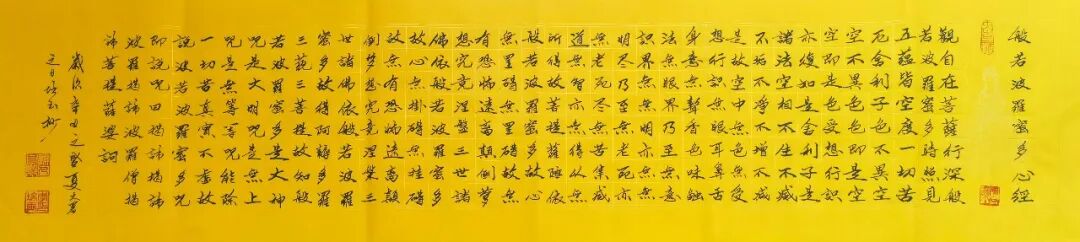 般若波羅蜜多心經
觀自在菩薩行深般
若波羅蜜多時照見
五蘊皆空度一切苦
厄舍利子色不異空
空不異色色即是空
空即是色受想行識
亦復如是舍利子是
諸法空相不生不滅
不垢不淨不增不減
是故空中無色無受
想行識無眼耳鼻舌
身意無色聲香味觸
法無眼界乃至無意
識界無無明亦無無
明盡乃至無老死亦
無老死盡無苦集滅
道無智亦無得以無
所得故菩提薩埵依
般若波羅蜜多故心
無罣礙無罣礙故無
有恐怖遠離顛倒夢
想究竟涅槃三世諸
佛依般若波羅蜜多
故心無掛礙無罣礙
故無有恐怖遠離顛
倒夢想究竟涅槃三
世諸佛依般若波羅
蜜多故得阿耨多羅
三藐三菩提故知般
若波羅蜜多是大神
咒是大明咒是無上
咒是無等等咒能除
一切苦真實不虛故
說般若波羅蜜多咒
即說咒曰揭諦揭諦
波羅揭諦波羅僧揭
諦菩提薩婆訶
歲次辛丑之盛夏